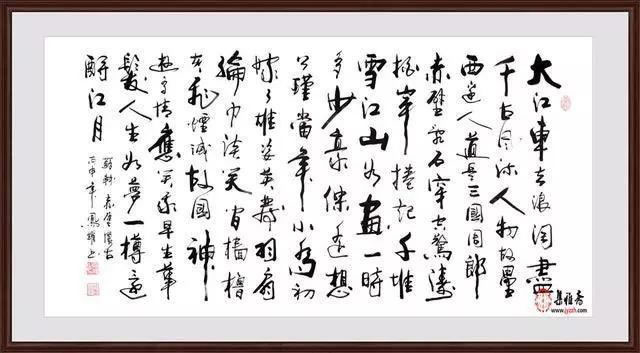 大江東去浪淘盡
千古風流人物故壘
西邊人道是三國周郎
赤壁亂石穿空驚濤
拍岸捲起千堆
雪江山如畫一時
多少豪傑遙想
公瑾當年小喬初
嫁了雄姿英發羽扇
綸巾談笑間檣櫓
灰飛煙滅故國神
遊多情應笑我早生華
髮人生如夢一樽還
酹江月
蘇軾赤壁懷古
丙申年
集雅斋
www.jyzzh.com